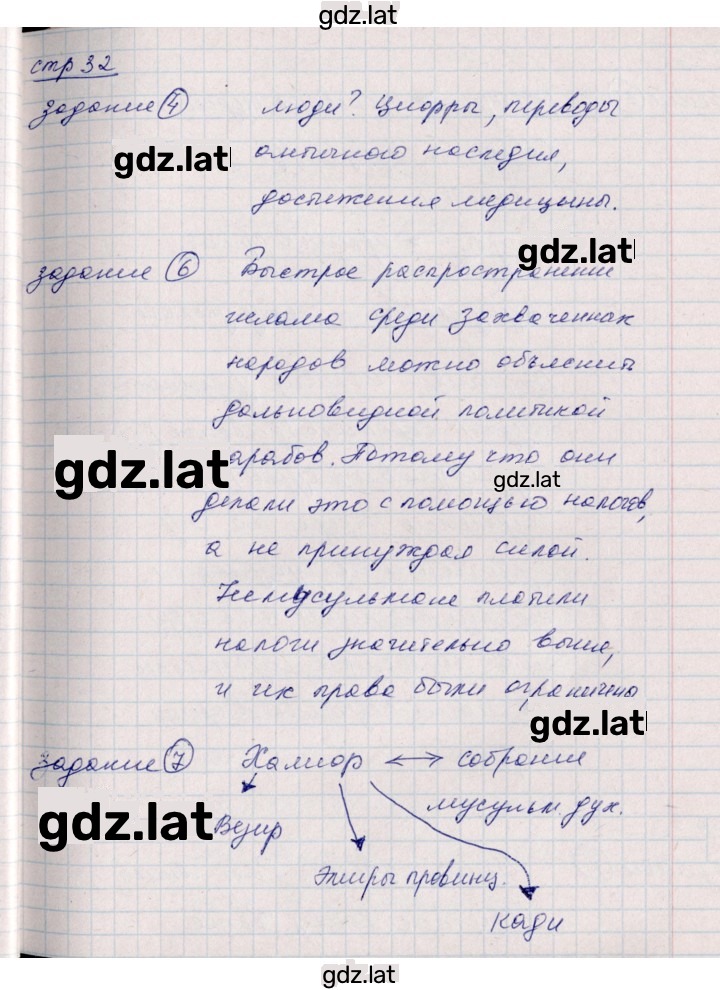 gdz.lat
стр 32
задание 4 люди? Цифры, переводы
gdz.lat античного наследия,
достижения медицыны.
gdz.lat
задание 6 Быстрое распространение
ислама среди захваченнах
народов можно объяснить
дальновидной политикой
gdz.lat арабов. Потому что они
gdz.lat
делали это с помощью налогов,
а не принуждая силой.
Немусульмане платили
налоги значительно выше,
и их права были ограничены
gdz.lat
задание 7 Халиф ↔ собрание
мусульм. дух.
gdz.lat Везир
Эмиры провинц.
кади
gdz.lat